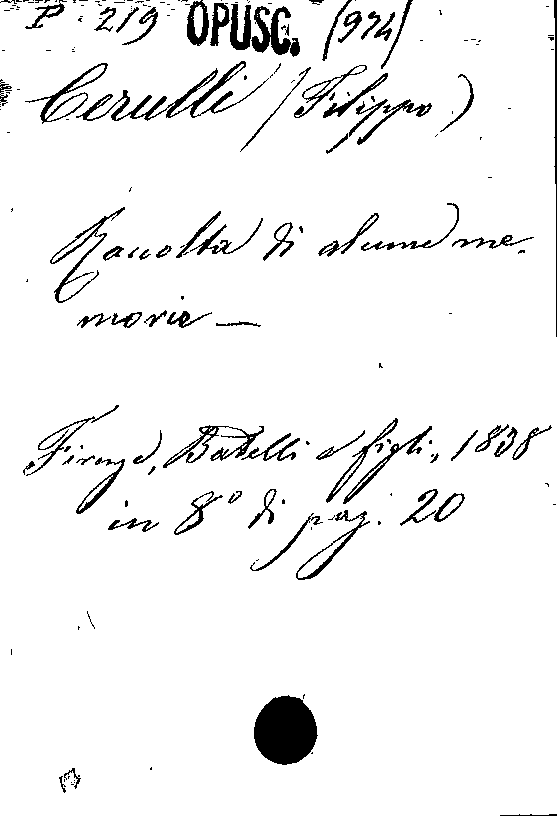 P 219 OPUSC. (974)
Cerulli (Filippo)
Raccolta di alcune me-
morie —
Firenze, Batelli e figli, 1838
in 8° di pag. 20